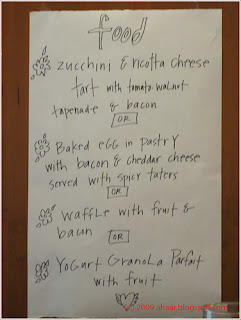 food
zucchini & ricotta cheese
tart with tomato-walnut
tapenade & bacon
OR
Baked egg in pastry
with bacon & cheddar cheese
served with spicy taters
OR
waffle with fruit &
bacon
OR
Yogurt Granola Parfait
with fruit
(c) 2009 ahaar.blogspot.com